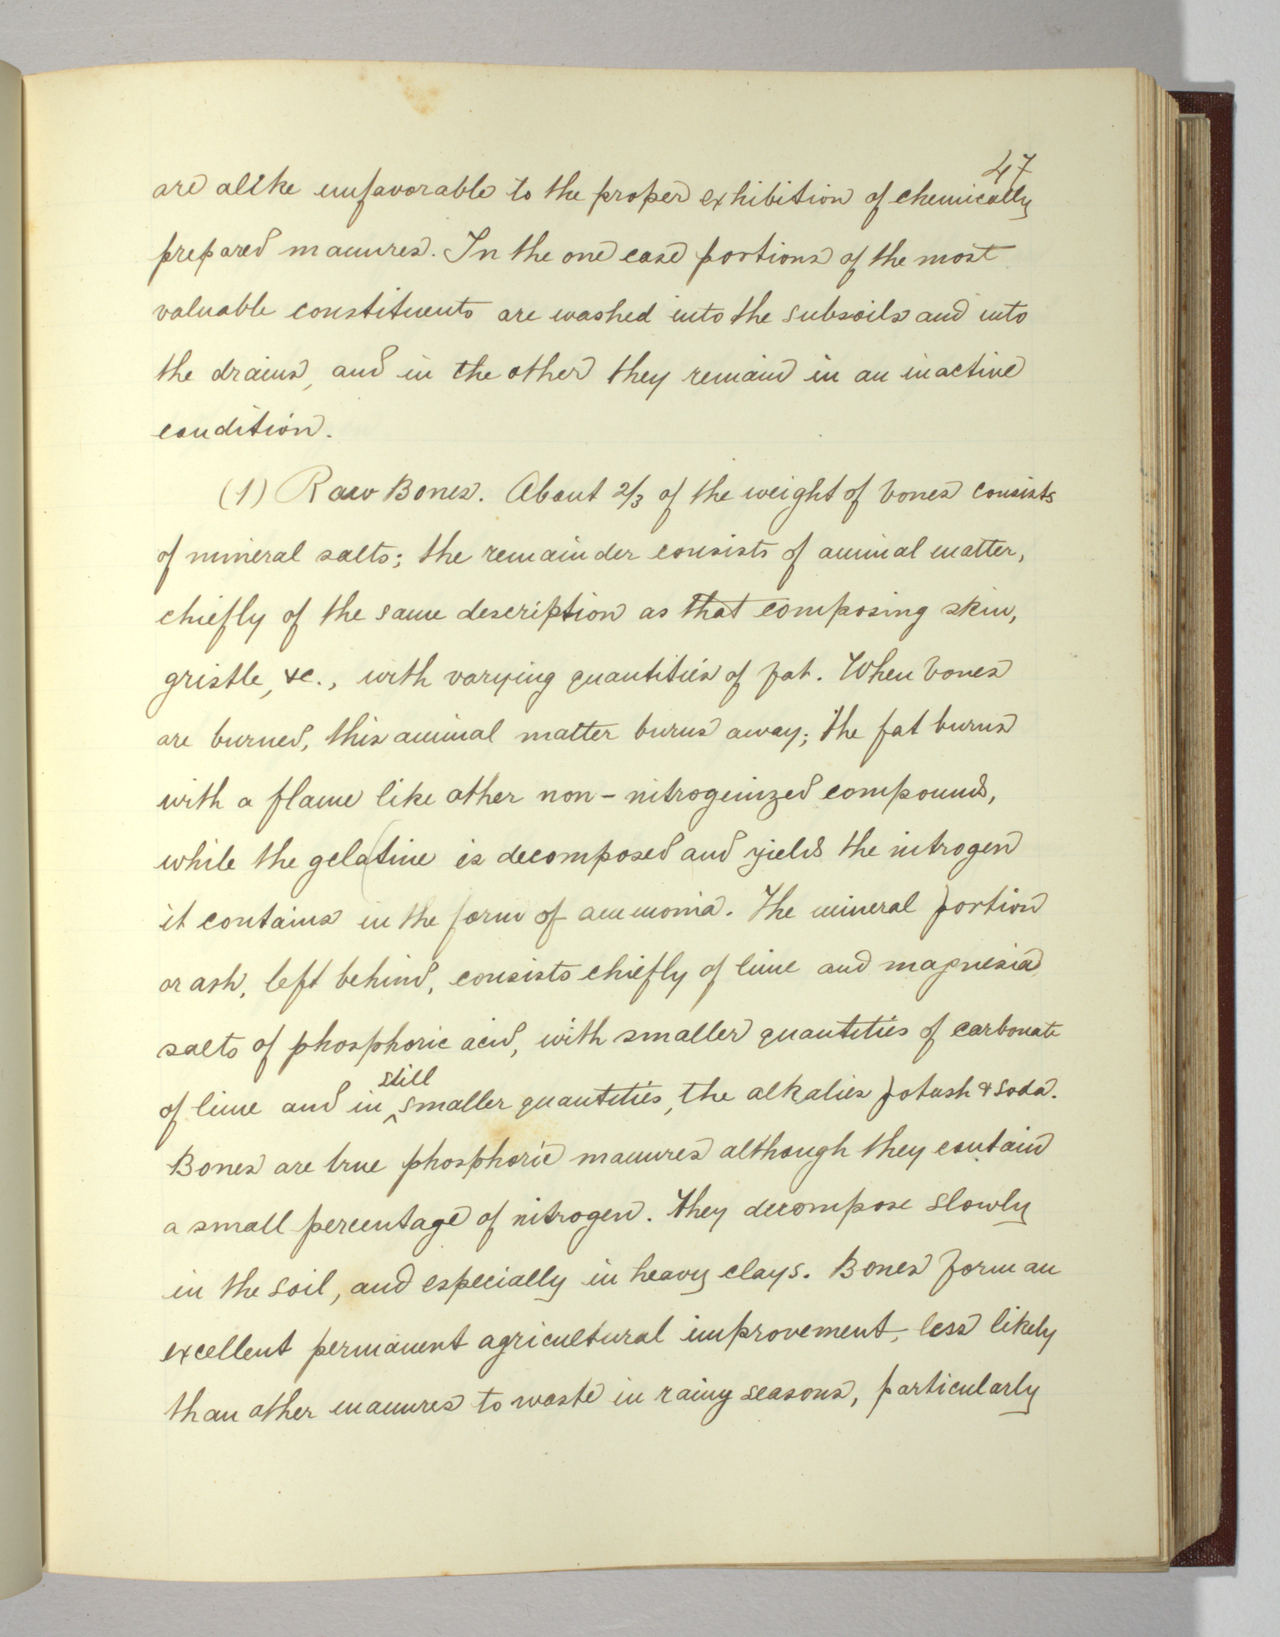 47
are alike unfavorable to the proper exhibition of chemically
prepared manures. In the one case portions of the most
valuable constituents are washed into the subsoils and into
the drains, and in the other they remain in an inactive
condition.
(1) Raw Bones. About 2/3 of the weight of bones consists
of mineral salts; the remainder consists of animal matter,
chiefly of the same description as that composing skin,
gristle, &c., with varying quantities of fat. When bones
are burned, this animal matter burns away; the fat burns
with a flame like other non-nitrogenized compounds,
while the gelatine is decomposed and yields the nitrogen
it contains in the form of ammonia. The mineral portion
or ash, left behind, consists chiefly of lime and magnesia
salts of phosphoric acid, with smaller quantities of carbonate
of lime and in still smaller quantities, the alkalies potash & soda.
Bones are true phosphoric manures although they contain
a small percentage of nitrogen. They decompose slowly
in the soil, and especially in heavy clays. Bones form an
excellent permanent agricultural improvement, less likely
than other manures to waste in rainy seasons, particularly